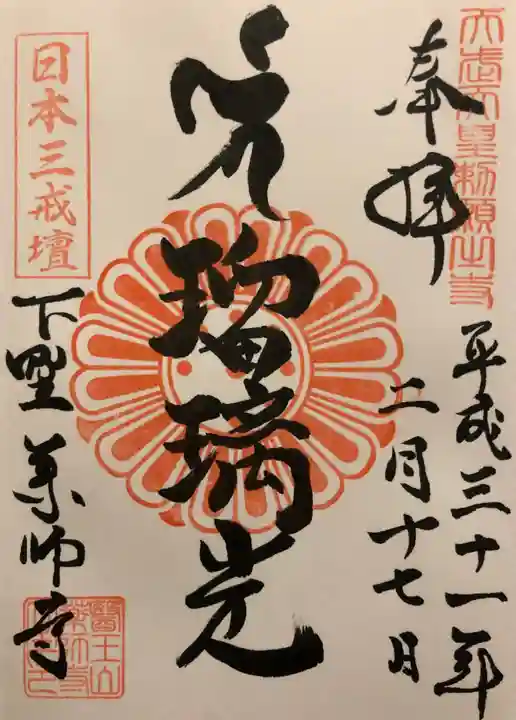 天武天皇勅願出寺
奉拝
平成三十一年
二月十七日
瑠璃光
日本三戒壇
下野 薬師寺
醫王山
薬師寺